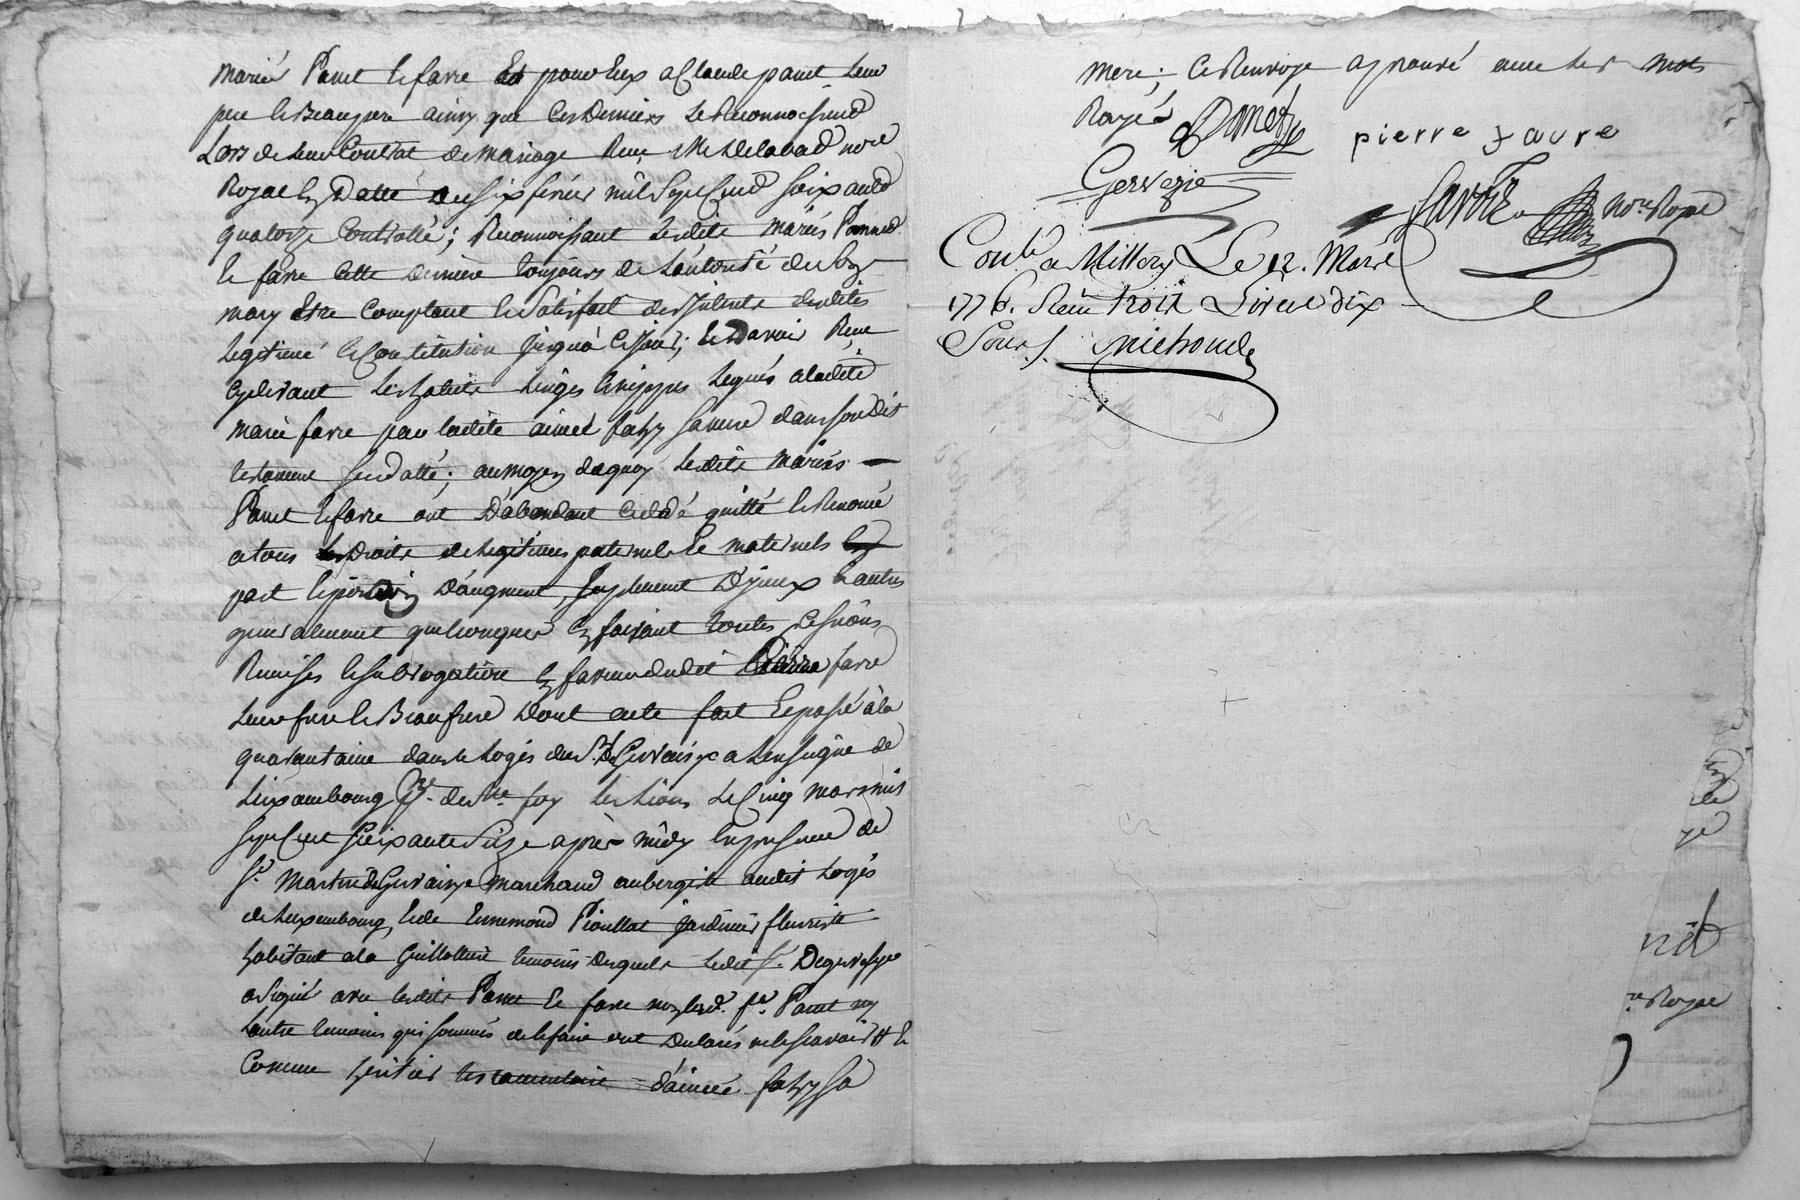 mariés Panet & favre Et pour eux a Claude panet leur
pere & Beaupere ainsy que ces Derniers le Reconnoissent
Lors de leur Contrat de mariage Reçu Me Delabad nore
Royal En Datte du six fevrier mil sept Cend soixante
quatorze Controllé; Reconnoissant lesdits mariés Panet
& favre cette derniere toujours de l'autorité dudt
mary Etre Comptant & Satisfait des Interets desdites
legitimes & Constitution jusqu'à ce jour; Et d'avoir Reçu
cydevant les habits linges & nippes legués a ladite
marie favre par ladite aimée fahy sa mere dans son dit
testament susdatté; au moyen de quoy lesdits mariés
Panet & favre ont D'abondant cedé quitté & Renoncé
a tous Droits de legitimes paternels & maternels
part & portion D'augment, suplement D'yceux & autres
generalement quelconques En faisant toutes Cessions
Remises & subrogations En faveur dudit Pierre favre
leur frere & Beaufrere Dont acte fait & passé à la
quarantaine dans le Logis du Sr. de Gervaisye a L'enseigne de
Luxembourg psse. de Ste foy les Lions Le Cinq mars mil
sept Cent soixante Seize après midy En presence de
Sr. Martin de Gervaisye marchand aubergiste audit Logis
de Luxembourg, & de Ennemond Pioullat jardinier fleuriste
habitant a la Guillottiere temoins Desquels ledit Sr. Degervesye
a signé avec lesdits Panet & favre non lad. fe. Panet ny
l'autre temoins qui sommés de le faire ont Declarés ne le scavoir # &
Comme heritier testamentaire d'aimée fahy sa
mere; Ce Renvoye aprouvé avec les mots
Rayés Panet
pierre favre
Gervezie
Nore. Royal
Conlé a Millery Le 12. Mars
1776. Reçu trois Livres dix
Sous /. michoud